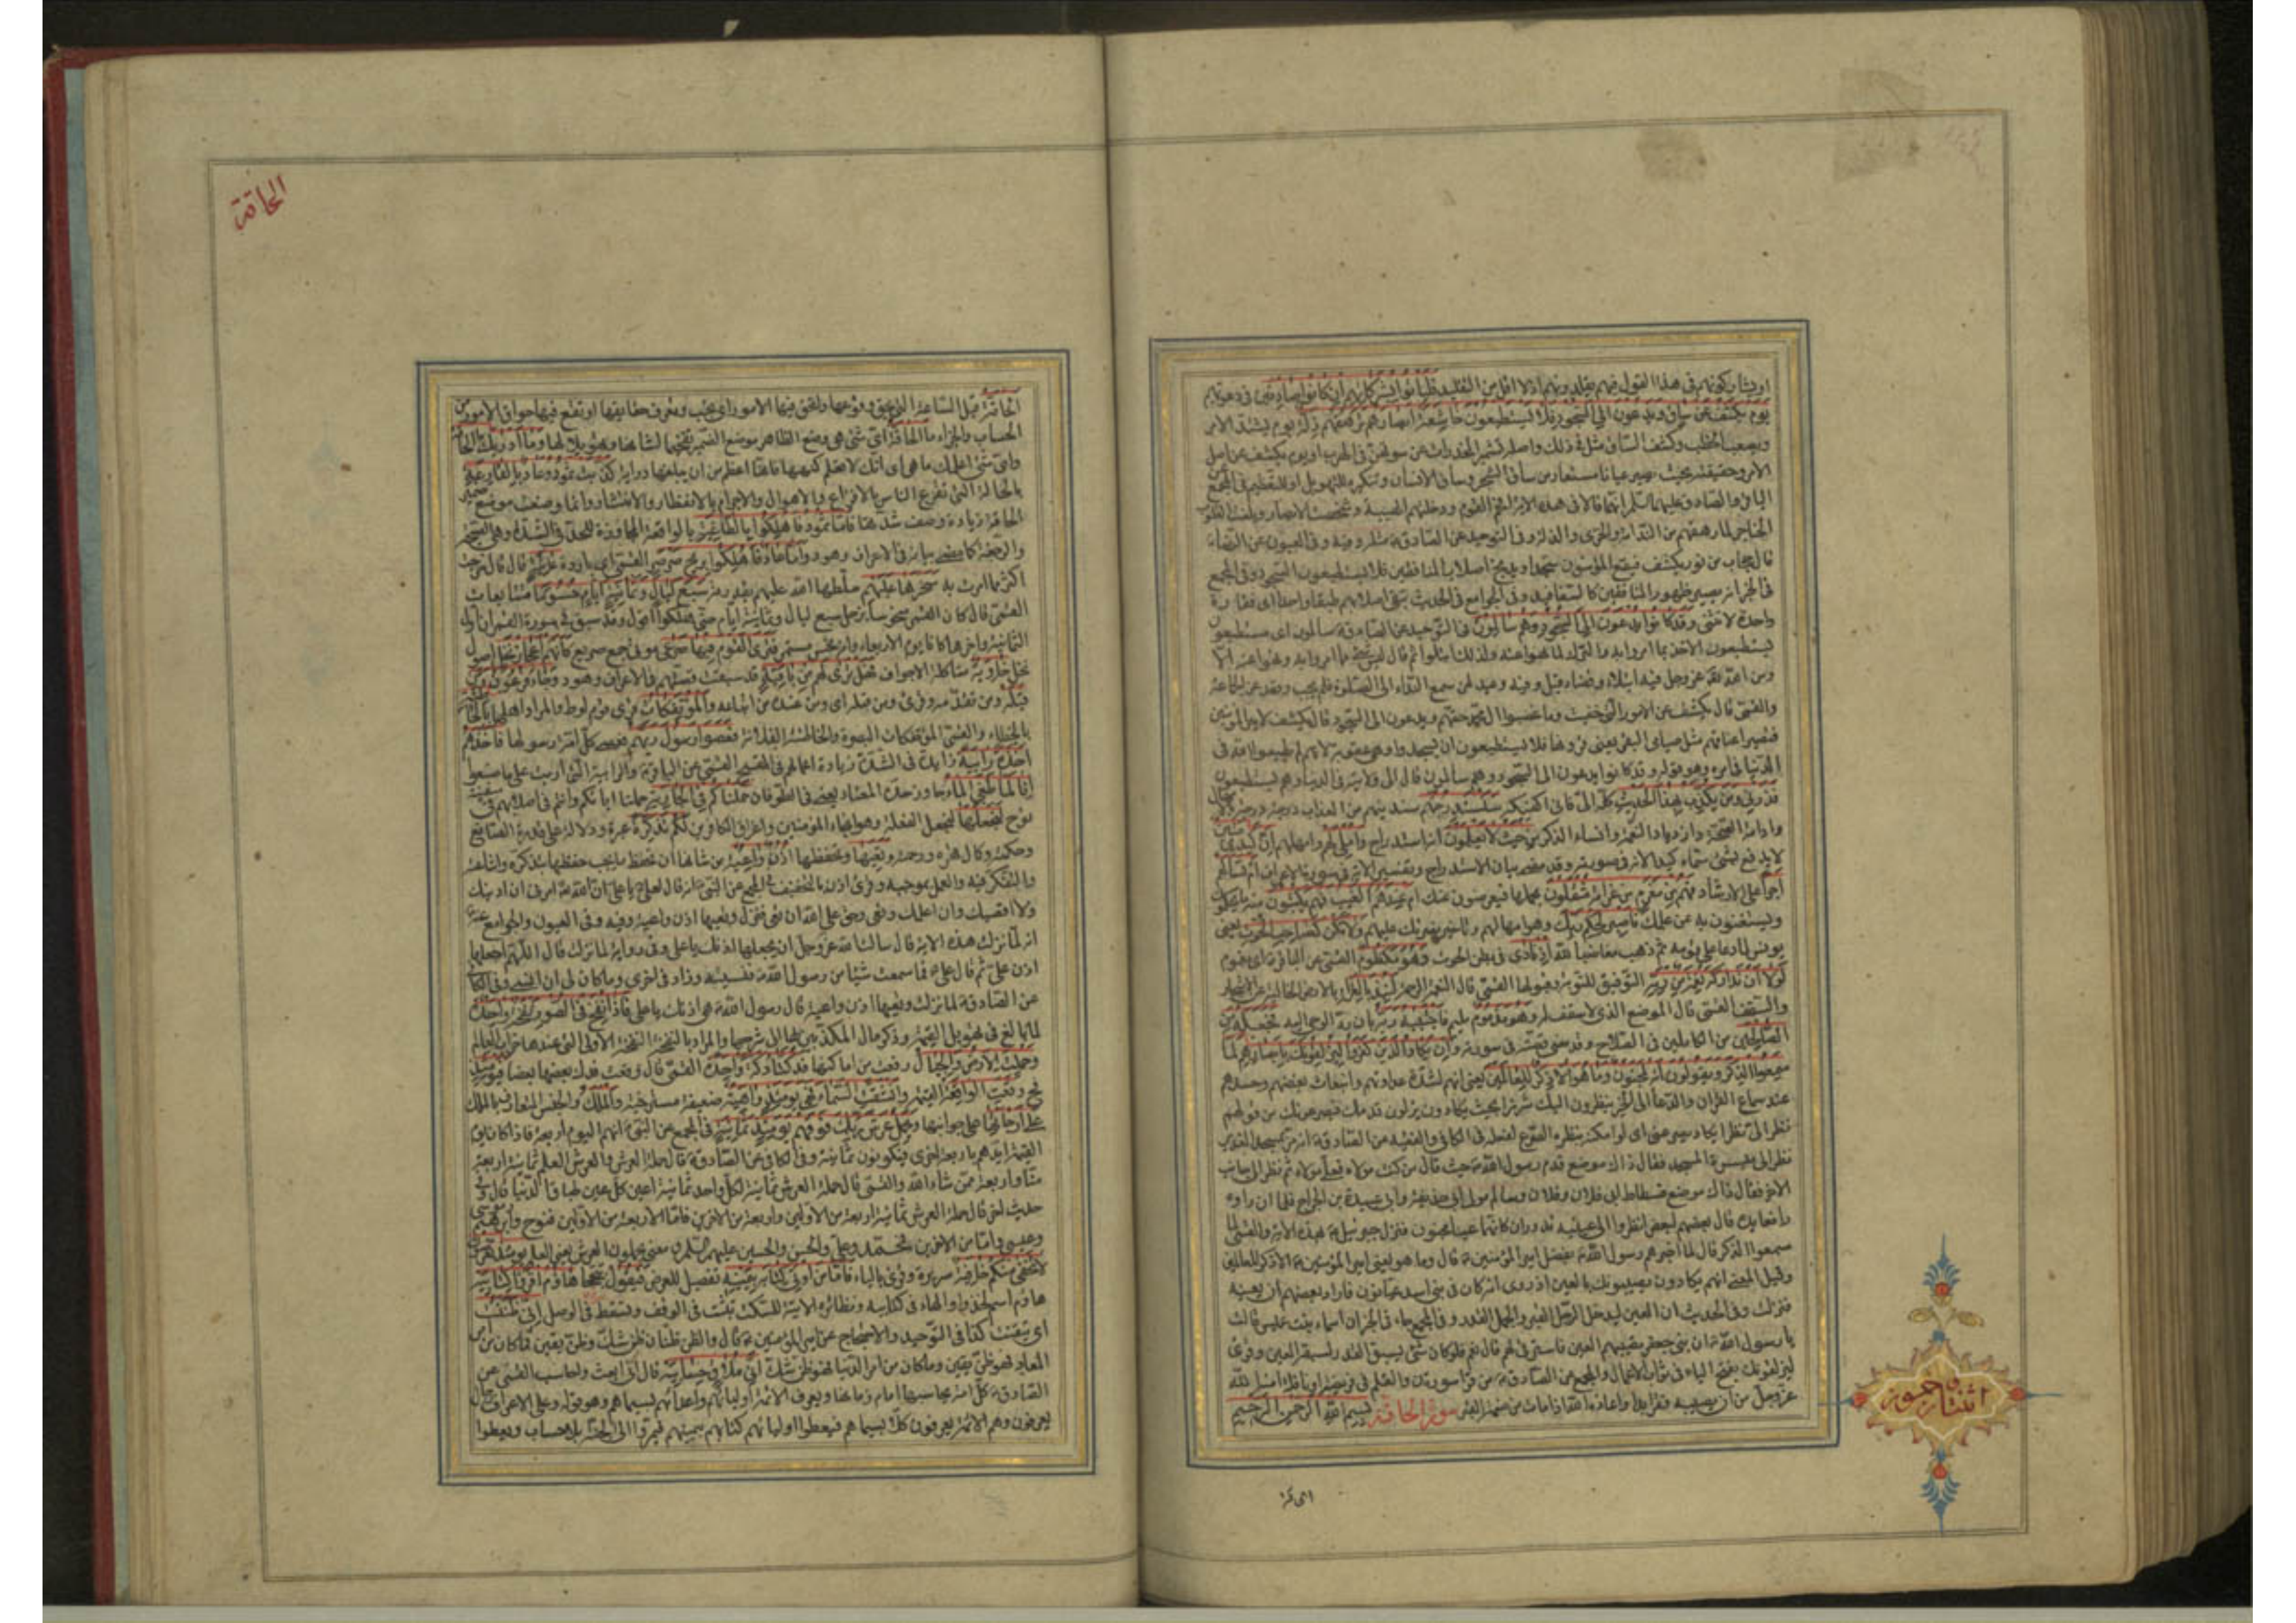 او يشاركونهم في هذا القول فهم يقلدونهم اذ لا اقل من التقليد فليأتوا بشركائهم ان كانوا صادقين في دعويهم
يوم يكشف عن ساق ويدعون الى السجود فلا يستطيعون خاشعة ابصارهم ترهقهم ذلة يوم يشتد الامر
ويصعب الخطب وكشف الساق مثل في ذلك واصله تشمير المخدرات عن سوقهن في الهرب او يوم يكشف عن اصل
الامر وحقيقته بحيث يصير عيانا مستعار من ساق الشجر وساق الانسان وتنكيره للتهويل او للتعظيم في المجمع عن
الباقر والصادق عليهما السلم انهما قالا في هذه الاية افحم القوم ودخلتهم الهيبة وشخصت الابصار وبلغت القلوب
الحناجر لما رهقهم من الندامة والخزى والذلة وفي التوحيد عن الصادق ع مثله وفيه وفي العيون عن الرضا ع
قال حجاب من نور يكشف فيقع المؤمنون سجدا ويدمج اصلاب المنافقين فلا يستطيعون السجود وفي المجمع
في الخبر انه يصير ظهور المنافقين كالسفافيد وفي الجوامع في الحديث تبقى اصلابهم طبقا واحدا اى فقارة
واحدة لا تنثنى وقد كانوا يدعون الى السجود وهم سالمون في التوحيد عن الصادق ع سالمون اى مستطيعون
يستطيعون الاخذ بما امروا به والترك لما نهوا عنه ولذلك ابتلوا ثم قال ليس شئ مما امروا به ونهوا عنه الا
ومن الله عز وجل فيه ابتلاء وقضاء قيل وفيه وعيد لمن سمع النداء الى الصلوة فلم يجب وقعد عن الجماعة
والقمى قال يكشف عن الامور التى خفيت وما غصبوا ال محمد حقهم ويدعون الى السجود قال يكشف لامير المؤمنين
فتصير اعناقهم مثل صياصى البقر يعنى قرونها فلا يستطيعون ان يسجدوا وهى عقوبة لانهم لم يطيعوا الله في
الدنيا في امره وهو قوله وقد كانوا يدعون الى السجود وهم سالمون قال الى ولايته في الدنيا وهم يستطيعون
فذرنى ومن يكذب بهذا الحديث كله الى فانى اكفيكه سنستدرجهم سندنيهم من العذاب درجة درجة بالامهال
وادامة الصحة وازدياد النعمة وانساء الذكر من حيث لا يعلمون انه استدراج واملى لهم وامهلهم ان كيدى متين
لا يدفع بشئ سماه كيدا لانه في صورته وقد مضى بيان الاستدراج وتفسير الاية في سورة الاعراف ام تسألهم
اجرا على الارشاد فهم من مغرم من غرامة مثقلون بحملها فيعرضون عنك ام عندهم الغيب فهم يكتبون منه ما يحكمون
ويستغنون به عن علمك فاصبر لحكم ربك وهو امهالهم وتأخير نصرتك عليهم ولا تكن كصاحب الحوت يعنى
يونس لما دعا على قومه ثم ذهب مغاضبا لله اذ نادى في بطن الحوت وهو مكظوم القمى عن الباقر ع اى مغموم
لولا ان تداركه نعمة من ربه التوفيق للتوبة وقبولها القمى قال النعمة الرحمة لنبذ بالعراء بالارض الخالية عن الاشجار
والسقف القمى قال الموضع الذى لا سقف له وهو مذموم مليم فاجتبيه ربه بان رد الوحى اليه فجعله من
الصالحين من الكاملين في الصلاح وقد مضى قصته في سورته وان يكاد الذين كفروا ليزلقونك بابصارهم لما
سمعوا الذكر ويقولون انه لمجنون وما هو الا ذكر للعالمين يعنى انهم لشدة عداوتهم وانبعاث بغضهم وحسدهم
عند سماع القران والدعاء الى الخير ينظرون اليك شزرا بحيث يكادون يزلون قدمك فيصرعونك من قولهم
نظر الى نظرا يكاد يصرعنى اى لو امكنه بنظره الصرع لفعله في الكافى والفقيه عن الصادق ع انه مر بمسجد الغدير
نظر الى ميسرة المسجد فقال ذاك موضع قدم رسول الله ص حيث قال من كنت مولاه فعلى مولاه ثم نظر الى جانب
الاخر فقال ذاك موضع فسطاط ابى فلان وفلان وسالم مولى ابى حذيفة وابى عبيدة بن الجراح فلما ان راوه
رافعا يده قال بعضهم لبعض انظروا الى عينيه تدوران كانهما عينا مجنون فنزل جبرئيل ع بهذه الاية والقمى لما
سمعوا الذكر قال لما اخبرهم رسول الله ص بفضل امير المؤمنين ع قال وما هو يعنى امير المؤمنين ع الا ذكر للعالمين
وقيل المعنى انهم يكادون يصيبونك بالعين اذ روى انه كان في بنى اسد عيانون فاراد بعضهم ان يعينه
فنزلت وفي الحديث ان العين ليدخل الرجل القبر والجمل القدر وفي المجمع جاء في الخبر ان اسماء بنت عميس قالت
يا رسول الله ص ان بنى جعفر يصيبهم العين فاسترقى لهم قال نعم فلو كان شئ يسبق القدر لسبقه العين وقرئ
ليزلقونك بفتح الياء في ثواب الاعمال والمجمع عن الصادق ع من قرأ سورة ن والقلم في فريضة او نافلة امنه الله
عز وجل من ان يصيبه فقر ابدا واعاذه الله اذا مات من ضمة القبر سورة الحاقة بسم الله الرحمن الرحيم
الحاقة
اثنتا خمسون
الحاقة
الحاقة قيل الساعة التى يحق وقوعها وتحق فيها الامور اى يجب ويعرف حقايقها او تقع فيها حواق الامور من
الحساب والجزاء ما الحاقة اى شئ هى وضع الظاهر موضع الضمير تفخيما لشانها وتهويلا لها وما ادريك ما الحاقة
واى شئ اعلمك ما هى اى انك لا تعلم كنهها فانها اعظم من ان يبلغها دراية كذبت ثمود وعاد بالقارعة
بالحالة التى تقرع الناس بالافزاع والاهوال والاجرام بالانفطار والانتشار وانما وضعت موضع ضمير
الحاقة زيادة وصف شدتها فاما ثمود فاهلكوا بالطاغية بالواقعة المجاوزة للحد في الشدة وهى الصيحة
والرجفة كما مضى بيانه في الاعراف وهود واما عاد فاهلكوا بريح صرصر القمى اى باردة عاتية قال قال خرجت
اكثر مما امرت به سخرها عليهم سلطها الله عليهم بقدرته سبع ليال وثمانية ايام حسوما متتابعات
القمى قال كان القمر منحوسا بزحل سبع ليال وثمانية ايام حتى هلكوا اقول وقد سبق في سورة القمر ان اول
الثمانية واخرها كانا يوم الاربعاء وانه نحس مستمر فترى القوم فيها صرعى موتى جمع صريع كانهم اعجاز نخل اصول
نخل خاوية متاكلة الاجواف فهل ترى لهم من باقية قد سبقت قصتهم في الاعراف وهود وجاء فرعون ومن
قبله ومن تقدمه وقرئ ومن قبله اى ومن عنده من اتباعه والمؤتفكات قرى قوم لوط والمراد اهلها بالخاطئة
بالخطاء والقمى المؤتفكات البصرة والخاطئة الفلانة فعصوا رسول ربهم فعصى كل امة رسولها فاخذهم
اخذة رابية زايدة في الشدة زيادة اعمالهم في القبيح القمى عن الباقر ع والرابية التى اربت على ما صنعوا
انا لما طغى الماء جاوز حده المعتاد يعنى في الطوفان حملناكم في الجارية حملنا اباءكم وانتم في اصلابهم في سفينة
نوح لنجعلها لنجعل الفعلة وهو انجاء المؤمنين واغراق الكافرين لكم تذكرة عبرة ودلالة على قدرة الصانع
وحكمته وكمال قهره ورحمته وتعيها وتحفظها اذن واعية من شانها ان تحفظ ما يجب حفظها بتذكره واشاعته
والتفكر فيه والعمل بموجبه وقرئ اذن بالتخفيف في المجمع عن النبى ص انه قال لعلى ع يا على ان الله تع امرنى ان ادنيك
ولا اقصيك وان اعلمك وتعى وحق على الله ان تعى فنزل وتعيها اذن واعية وفيه وفي العيون والجوامع عنه ص
انه لما نزلت هذه الاية قال سالت الله عز وجل ان يجعلها اذنك يا على وفي رواية لما نزلت قال اللهم اجعلها
اذن على ثم قال على ع فما سمعت شيئا من رسول الله ص فنسيته وزاد في اخرى وما كان لى ان انسى وفي الكافى
عن الصادق ع لما نزلت وتعيها اذن واعية قال رسول الله ص هى اذنك يا على فاذا نفخ في الصور نفخة واحدة
لما بالغ في تهويل القيمة وذكر مال المكذبين بها عاد الى شرحها والمراد بالنفخة النفخة الاولى التى عندها خراب العالم
وحملت الارض والجبال رفعت من اماكنها فدكتا دكة واحدة القمى قال وقعت فدك بعضها بعضا فيومئذ
وقعت الواقعة القيمة وانشقت السماء فهى يومئذ واهية ضعيفة مسترخية والملك والجنس المتعارف بالملك
على ارجائها على جوانبها ويحمل عرش ربك فوقهم يومئذ ثمانية في المجمع عن النبى ص انهم اليوم اربعة فاذا كان يوم
القيمة ايدهم باربعة اخرى فيكونون ثمانية وفي الكافى عن الصادق ع قال حملة العرش والعرش العلم ثمانية اربعة
منا واربعة ممن شاء الله والقمى قال حملة العرش ثمانية لكل واحد ثمانية اعين كل عين طباق الدنيا قال وفي
حديث اخر قال حملة العرش ثمانية اربعة من الاولين واربعة من الاخرين فاما الاربعة من الاولين فنوح وابرهيم وموسى
وعيسى واما من الاخرين فمحمد وعلى والحسن والحسين عليهم السلم ومعنى يحملون العرش يعنى العلم يومئذ تعرضون
لا تخفى منكم خافية سريرة وقرئ بالياء فاما من اوتى كتابه بيمينه تفصيل للعرض فيقول تبجحا هاؤم اقرؤا كتابيه
هاؤم اسم لخذوا والهاء في كتابيه ونظائره الاتية للسكت تثبت في الوقف وتسقط في الوصل انى ظننت
اى تيقنت كذا في التوحيد والاحتجاج عن امير المؤمنين ع قال والظن ظنان ظن شك وظن يقين فما كان من امر
المعاد فهو ظن يقين وما كان من امر الدنيا فهو ظن شك انى ملاق حسابيه قال انى ابعث واحاسب القمى عن
الصادق ع كل امة يحاسبها امام زمانها ويعرف الائمة اولياءهم واعداءهم بسيماهم وهو قوله وعلى الاعراف رجال
يعرفون وهم الائمة يعرفون كلا بسيماهم فيعطوا اولياءهم كتابهم بيمينهم فيمروا الى الجنة بلا حساب ويعطوا